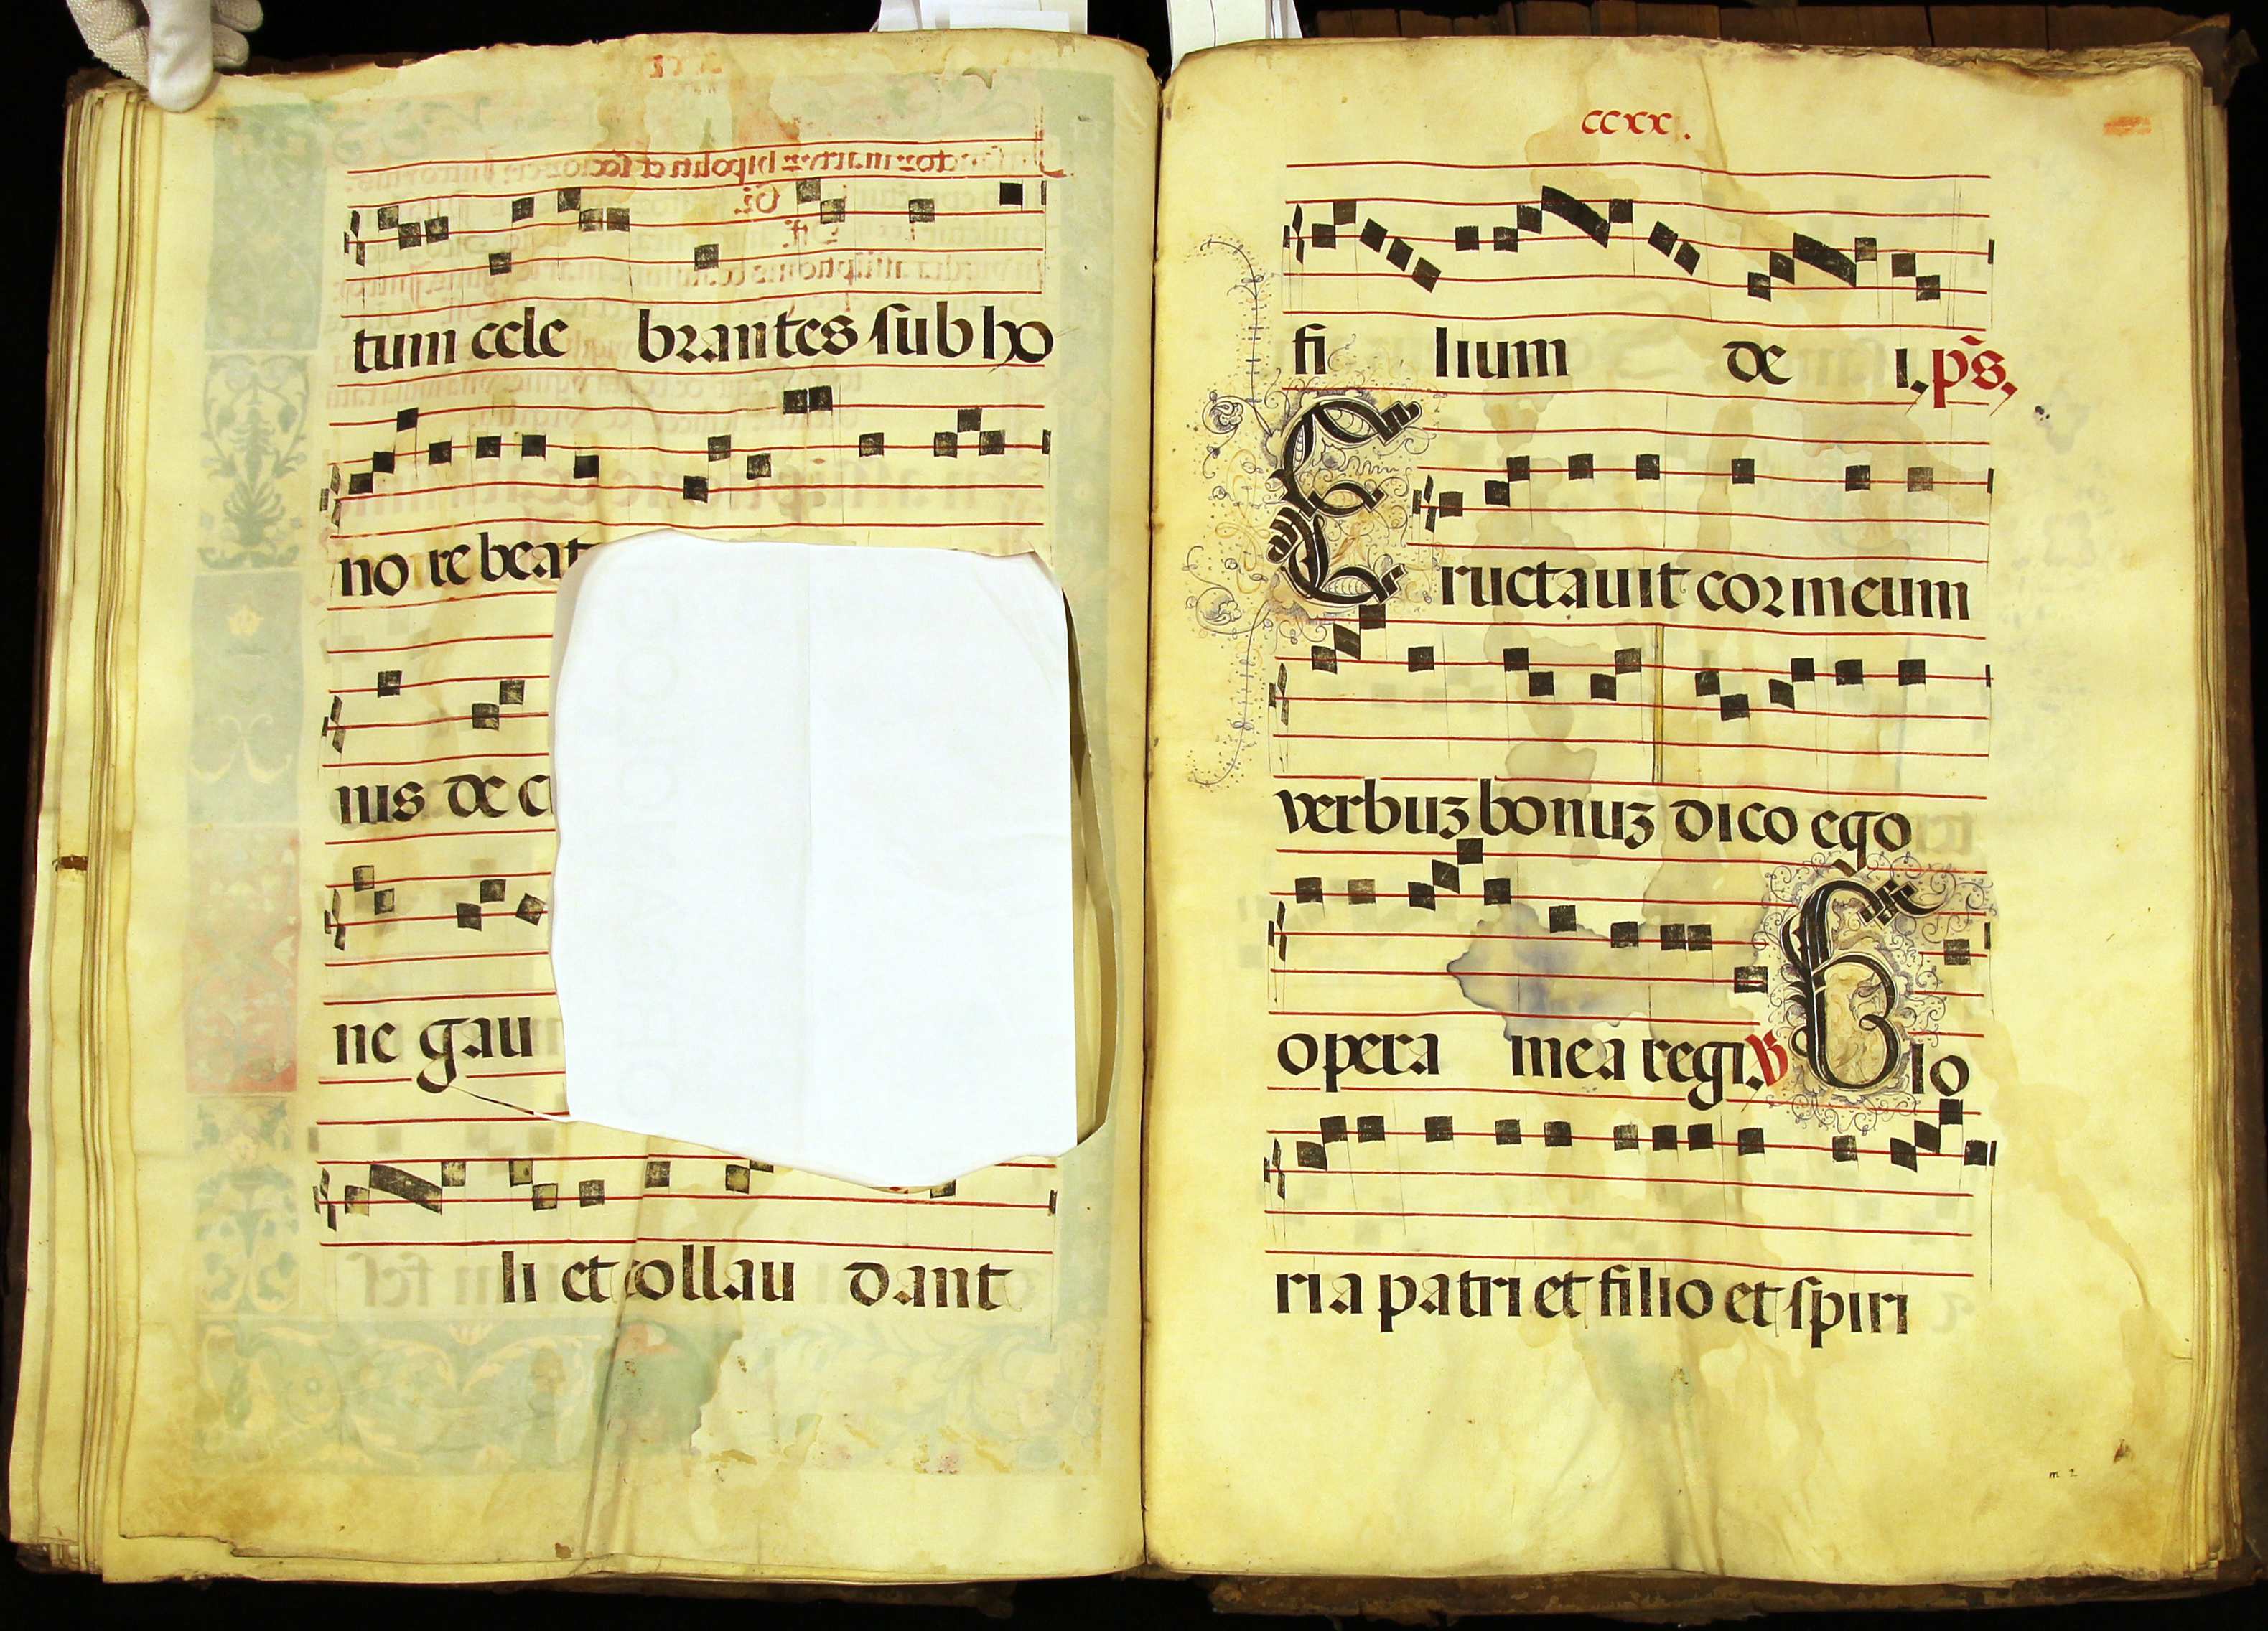 tum cele brantes sub ho
no re beat
nis de c
ne gau
li et collau dant
ccxx.
fi lium de i, ps,
E ructauit cor meum
verbuz bonuz dico ego
opera mea regi. V Glo
ria patri et filio et spiri
m 2